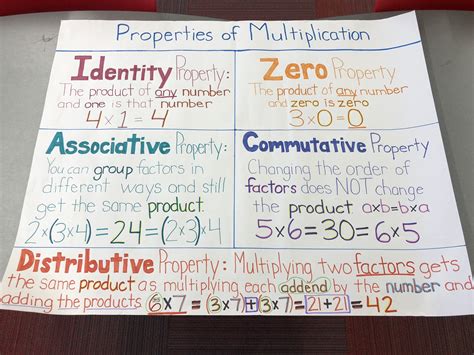 Properties of Multiplication
Identity Property:
The product of any number
and one is that number
4 x 1 = 4
Zero Property
The product of any number
and zero is zero
3 x 0 = 0
Associative Property:
You can group factors in
different ways and still
get the same product.
2 x (3 x 4) = 24 = (2 x 3) x 4
Commutative Property
Changing the order of
factors does NOT change
the product a x b = b x a
5 x 6 = 30 = 6 x 5
Distributive Property: Multiplying two factors gets
the same product as multiplying each addend by the number and
adding the products 6 x 7 = (3 x 7) + (3 x 7) = 21 + 21 = 42